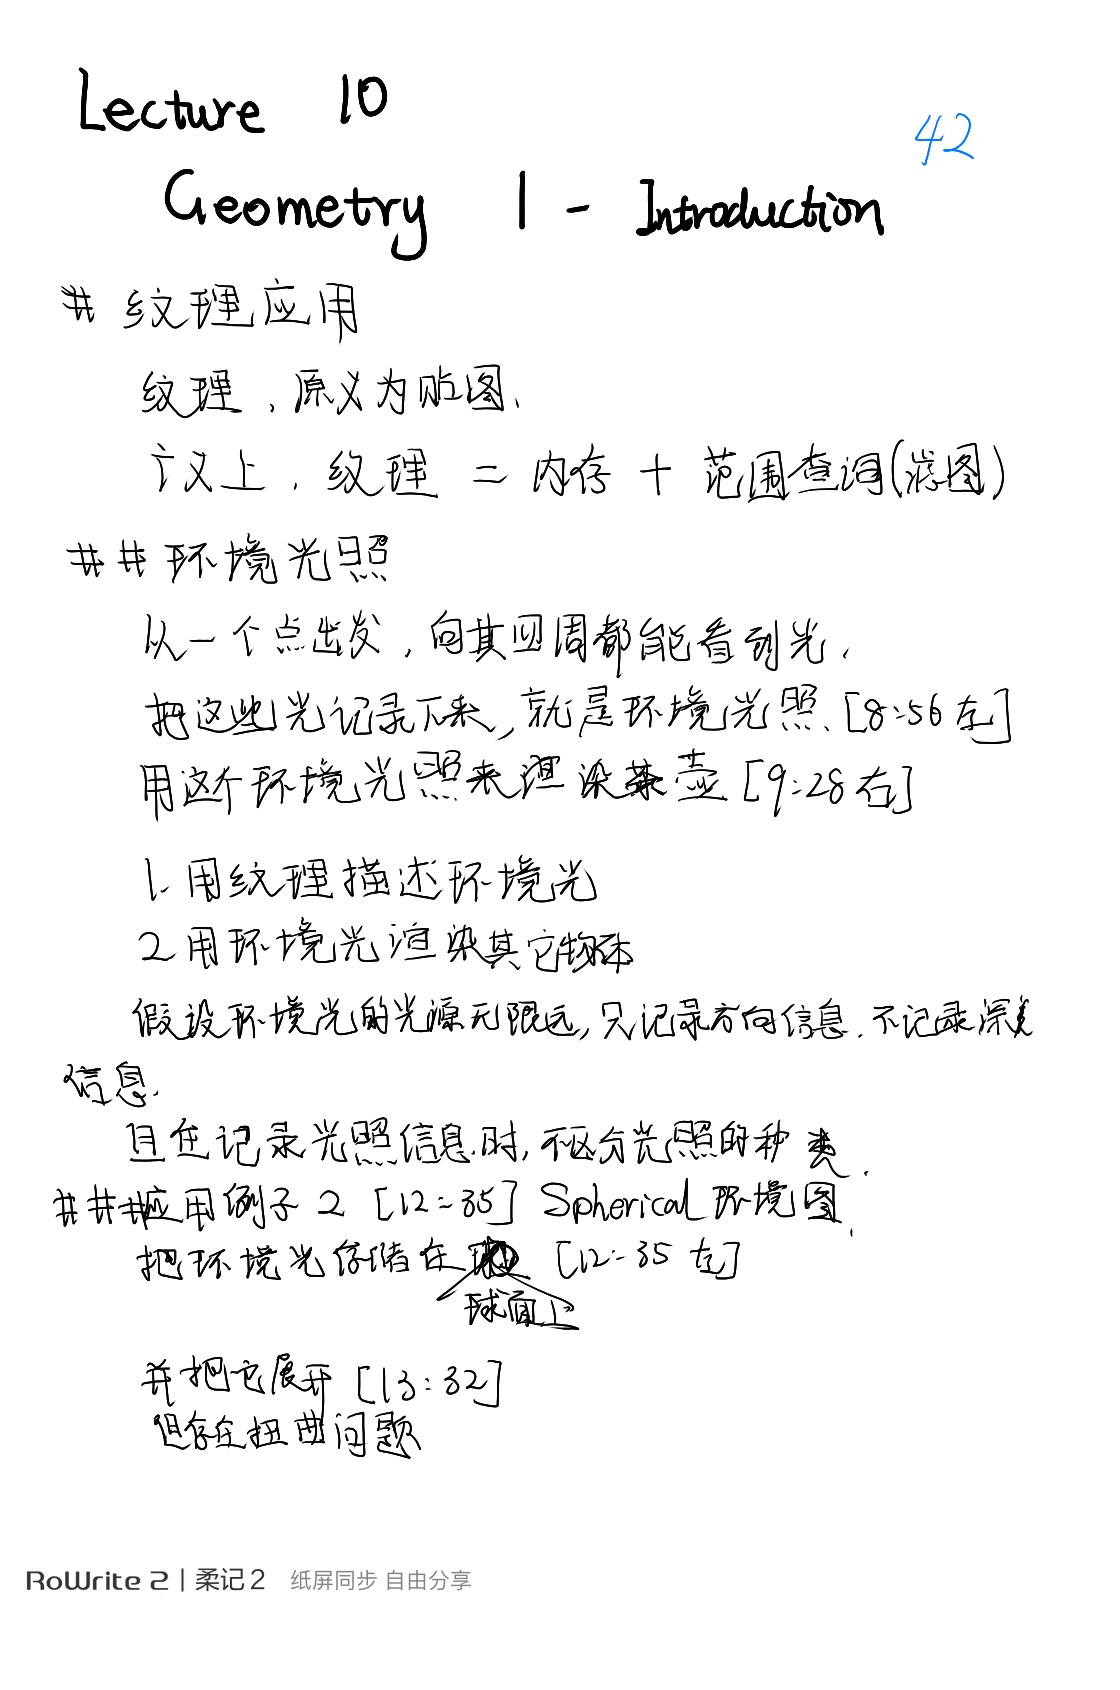 Lecture 10
42
Geometry 1 - Introduction
# 纹理应用
纹理,原义为贴图.
广义上,纹理 = 内存 + 范围查询(滤图)
## 环境光照
从一个点出发,向其四周都能看到光.
把这些光记录下来,就是环境光照.[8:56左]
用这个环境光照来渲染茶壶[9:28右]
1. 用纹理描述环境光
2 用环境光渲染其它物体
假设环境光的光源无限远,只记录方向信息.不记录深度
信息.
且在记录光照信息时,不区分光照的种类.
### 应用例子2 [12:35] Spherical 环境图.
把环境光存储在 [12:35左]
球面上
并把它展开[13:32]
但存在扭曲问题
RoWrite 2 | 柔记2 纸屏同步 自由分享